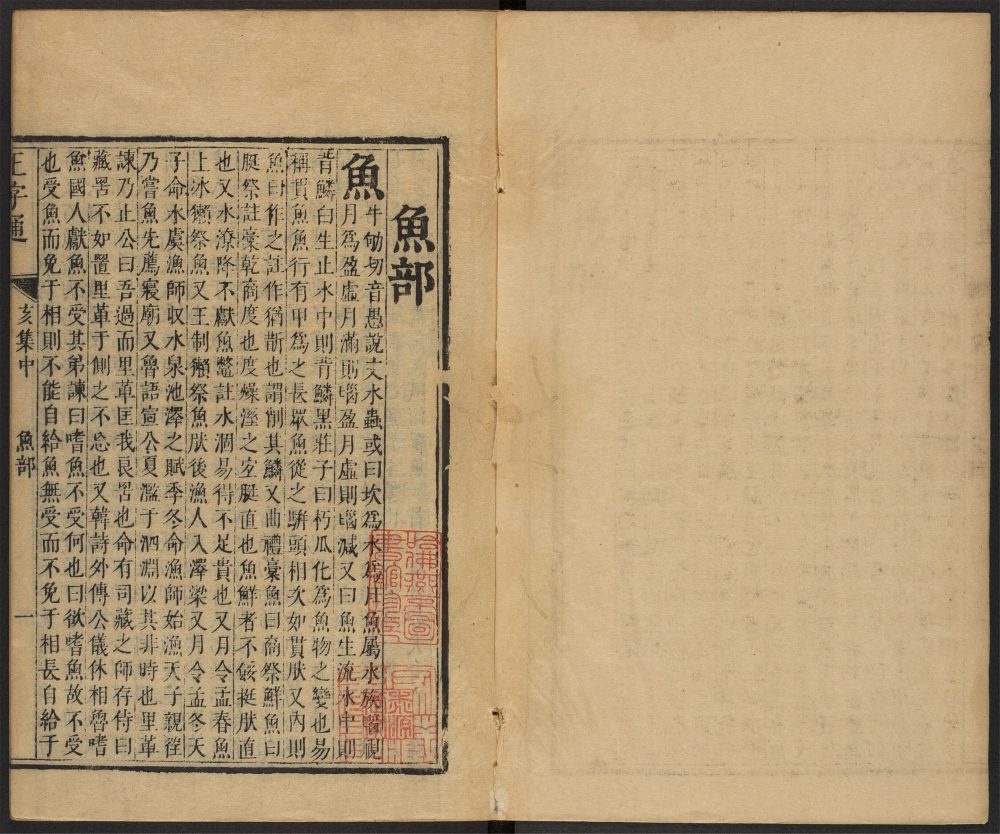 魚部
魚
牛劬切音愚說文水蟲或曰坎爲水爲月魚屬水族腦視
月爲盈虛月滿則腦盈月虛則腦減又曰魚生流水中則
背鱗白生止水中則背鱗黑莊子曰朽瓜化爲魚物之變也易
稱貫魚魚行有甲爲之長眾魚從之駢頭相次如貫肰又內則
魚曰作之註作猶斮也謂削其鱗又曲禮稾魚曰商祭鮮魚曰
脡祭註稾乾商度也度燥溼之空脡直也魚鮮者不餒挺肰直
也又水潦降不獻魚鼈註水涸易得不足貴也又月令孟春魚
上冰獺祭魚又王制獺祭魚肰後漁人入澤梁又月令孟冬天
子命水虞漁師収水泉池澤之賦季冬命漁師始漁天子親往
乃嘗魚先薦寢廟又魯語宣公夏濫于泗淵以其非時也里革
諫乃止公曰吾過而里革匡我良罟也命有司藏之師存侍曰
藏罟不如置里革于側之不忘也又韓詩外傳公儀休相魯嗜
魚國人獻魚不受其弟諫曰嗜魚不受何也曰欲嗜魚故不受
也受魚而免于相則不能自給魚無受而不免于相長自給于
正字通
亥集中
魚部
一